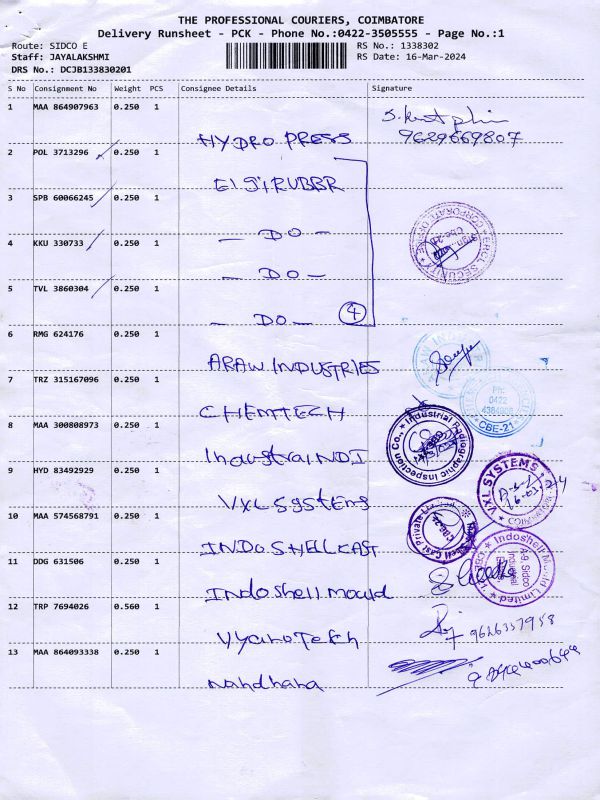 THE PROFESSIONAL COURIERS, COIMBATORE
Delivery Runsheet - PCK - Phone No.:0422-3505555 - Page No.:1
Route: SIDCO E
RS No.: 1338302
Staff: JAYALAKSHMI
RS Date: 16-Mar-2024
DRS No.: DCJB133830201
S No Consignment No Weight PCS Consignee Details Signature
1 MAA 864907963 0.250 1
HYDRO PRESS
9629669807
2 POL 3713296 0.250 1
ELGIRUBBR
3 SPB 60066245 0.250 1
- DO -
4 KKU 330733 0.250 1
- DO -
5 TVL 3860304 0.250 1
- DO - 4
6 RMG 624176 0.250 1
ARAW INDUSTRIES
7 TRZ 315167096 0.250 1
Ph:
0422
CBE-21
CHEMTECH
8 MAA 300808973 0.250 1
Industrial Radiographic Inspection Co.,
IndustraiNDI
9 HYD 83492929 0.250 1
VXL SYSTEMS
VXL systems
10 MAA 574568791 0.250 1
INDO SHELL CAST
11 DDG 631506 0.250 1
Indoshell Mould Limited
A-9, Sidco
Industrial
Indoshell Mould
12 TRP 7694026 0.560 1
9626357958
VyanoTech
13 MAA 864093338 0.250 1
Nandhana